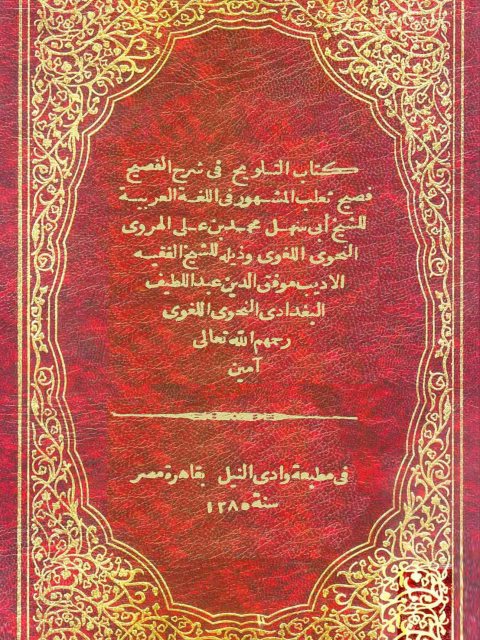 كتاب التلويح في شرح الفصيح
فصيح ثعلب المشهور فى اللغة العربية
للشيخ أبى سهل محمد بن على الهروى
النحوى اللغوى وذيله للشيخ الفقيه
الاديب موفق الدين عبد اللطيف
البغدادى النحوى اللغوى
رحمهم الله تعالى
آمين
فى مطبعة وادى النيل بقاهرة مصر
سنة ١٢٨٥